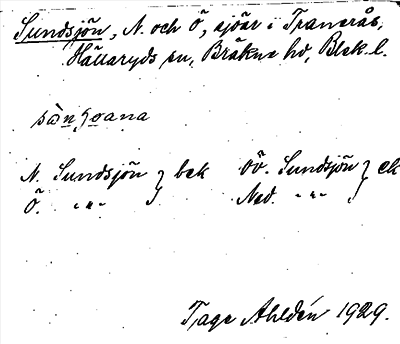 Sundsjön, N. och Ö, sjöar i Tranerås,
Hällaryds sn, Bräkne hd, Blek. l.
sàn,ʒoana
N. Sundsjön } bek Öv. Sundsjön } ek
Ö. „ Ned. „
Tage Ahldén 1929.